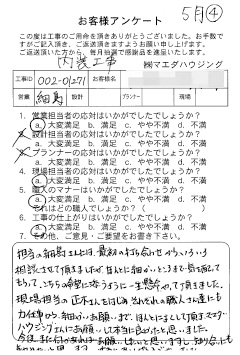 5月④
お客様アンケート
この度は工事のご用命を頂きありがとうございました。お手数で
すがご記入頂き、ご返送頂きますようお願い申し上げます。
ご返送頂いた方から、毎月抽選で感謝品を進呈いたします。
内装工事
㈱マエダハウジング
工事ID 002-01271 お客様名
営業 細鳥 設計 プランナー 現場
1. 営業担当者の応対はいかがでしたでしょうか?
a. 大変満足 b. 満足 c. やや不満 d. 不満
2. 設計担当者の応対はいかがでしたでしょうか?
a. 大変満足 b. 満足 c. やや不満 d. 不満
3. プランナーの応対はいかがでしたでしょうか?
a. 大変満足 b. 満足 c. やや不満 d. 不満
4. 現場担当者の応対はいかがでしたでしょうか?
a. 大変満足 b. 満足 c. やや不満 d. 不満
5. 職人のマナーはいかがでしたでしょうか?
a. 大変満足 b. 満足 c. やや不満 d. 不満
それはどの職人でしたか?(
6. 工事の仕上がりはいかがでしたでしょうか?
a. 大変満足 b. 満足 c. やや不満 d. 不満
7. その他、ご意見・ご要望をお書き下さい。
担当の細鳥さんには、最初の打ち合せからいろいろ
相談させて頂きましたが、ほんとに細かいところまで気を配って
もらって、こちらの希望に添うように一生懸命やって頂きました。
現場担当の正本さんをはじめ、それぞれの職人さん達にも
ハウジングさんにお願いして本当に良かったと思いました。